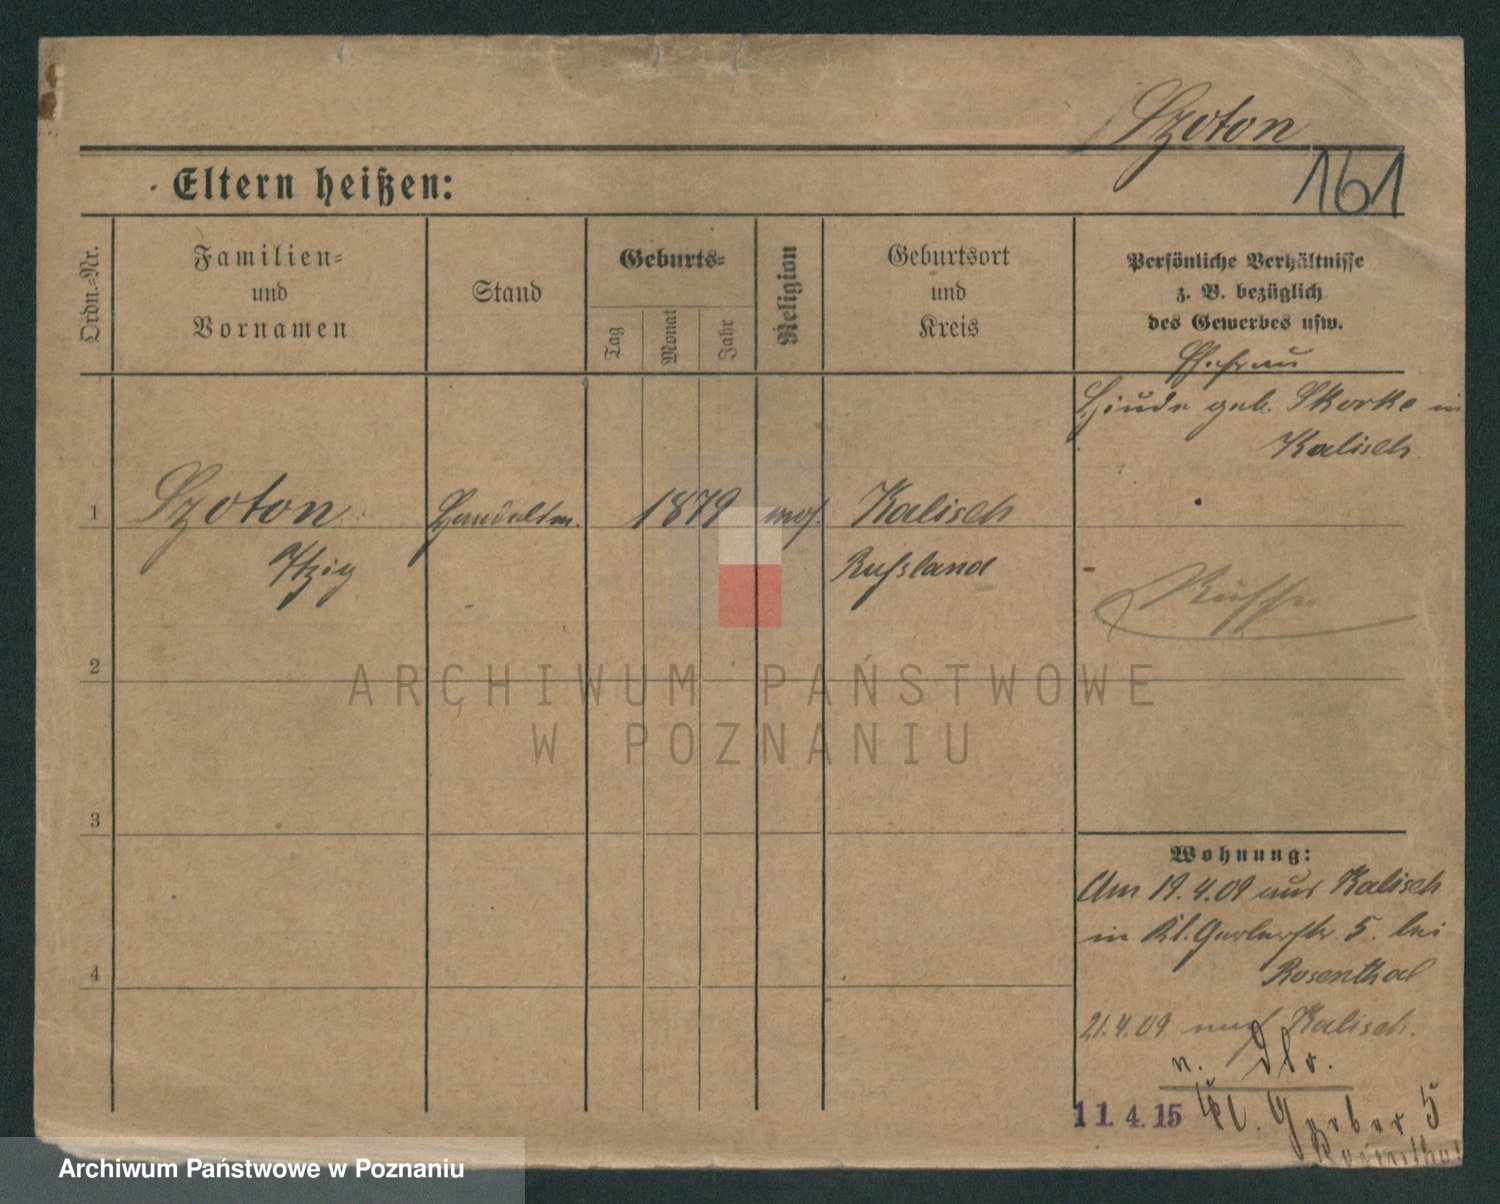 Szoton
161
Eltern heißen:
Ordn.-Nr.
Familien-
und
Vornamen
Stand
Geburts-
Tag
Monat
Jahr
Religion
Geburtsort
und
Kreis
Persönliche Verhältnisse
z. B. bezüglich
des Gewerbes usw.
Ehefrau
Hinde geb. Skorka in
Kalisch.
1 Szoton Handelsm. 1879 mos. Kalisch
Itzig Russland
Russe
2
3
4
Wohnung:
Am 19.4.09 aus Kalisch
in Kl. Gerberstr. 5. bei
Rosenthal
21.4.09 nach Kalisch.
n.
11.4.15 Kl. Gerber 5
Rosenthal
ARCHIWUM PAŃSTWOWE
W POZNANIU
Archiwum Państwowe w Poznaniu